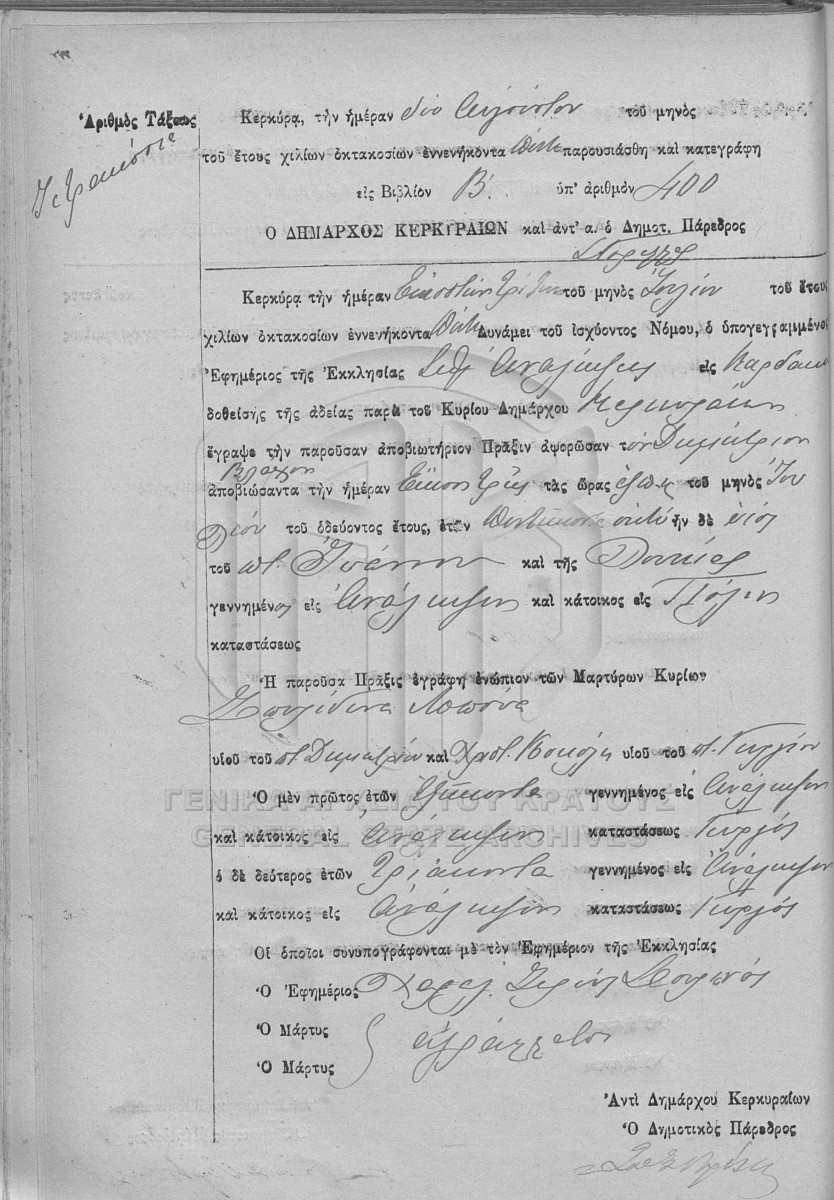 Ἀριθμὸς Τάξεως
Τετρακόσια
Κερκύρᾳ, τὴν ἡμέραν δύο Αὐγούστου τοῦ μηνὸς
τοῦ ἔτους χιλίων ὀκτακοσίων ἐννενήκοντα πέντε παρουσιάσθη καὶ κατεγράφη
εἰς Βιβλίον Β΄. ὑπ' ἀριθμὸν 400
Ο ΔΗΜΑΡΧΟΣ ΚΕΡΚΥΡΑΙΩΝ καὶ ἀντ' α. ὁ Δημοτ. Πάρεδρος
Κερκύρᾳ τὴν ἡμέραν Εἰκοστὴν τρίτην τοῦ μηνὸς Ἰουλίου τοῦ ἔτους
χιλίων ὀκτακοσίων ἐννενήκοντα πέντε Δυνάμει τοῦ ἰσχύοντος Νόμου, ὁ ὑπογεγραμμένος
Ἐφημέριος τῆς Ἐκκλησίας Ἀναλήψεως εἰς
δοθείσης τῆς ἀδείας παρὰ τοῦ Κυρίου Δημάρχου Κερκυραίων
ἔγραψε τὴν παροῦσαν ἀποβιωτήριον Πρᾶξιν ἀφορῶσαν τὸν Δημήτριον
Βλάχον
ἀποβιώσαντα τὴν ἡμέραν Εἴκοσι τρεῖς τὰς ὥρας τοῦ μηνὸς Ἰου
λίου τοῦ ὁδεύοντος ἔτους, ἐτῶν πεντήκοντα ὀκτώ ἦν δὲ υἱὸς
τοῦ ποτ. Ἰωάννου καὶ τῆς
γεννημένος εἰς Ἀνάληψιν καὶ κάτοικος εἰς Πόλιν
καταστάσεως
Ἡ παροῦσα Πρᾶξις ἐγράφη ἐνώπιον τῶν Μαρτύρων Κυρίων
Σπυρίδωνα
υἱοῦ τοῦ ποτ. Δημητρίου καὶ Χριστ. υἱοῦ τοῦ ποτ. Γεωργίου
Ὁ μὲν πρῶτος ἐτῶν ἑξήκοντα γεννημένος εἰς Ἀνάληψιν
καὶ κάτοικος εἰς Ἀνάληψιν καταστάσεως Γεωργὸς
ὁ δὲ δεύτερος ἐτῶν τριάκοντα γεννημένος εἰς Ἀνάληψιν
καὶ κάτοικος εἰς Ἀνάληψιν καταστάσεως Γεωργὸς
Οἱ ὁποῖοι συνυπογράφονται μὲ τὸν Ἐφημέριον τῆς Ἐκκλησίας
Ὁ Ἐφημέριος
Ὁ Μάρτυς ἀγράμματοι
Ὁ Μάρτυς
Ἀντὶ Δημάρχου Κερκυραίων
Ὁ Δημοτικὸς Πάρεδρος
ΓΕΝΙΚΑ ΑΡΧΕΙΑ ΤΟΥ ΚΡΑΤΟΥΣ
GENERAL STATE ARCHIVES